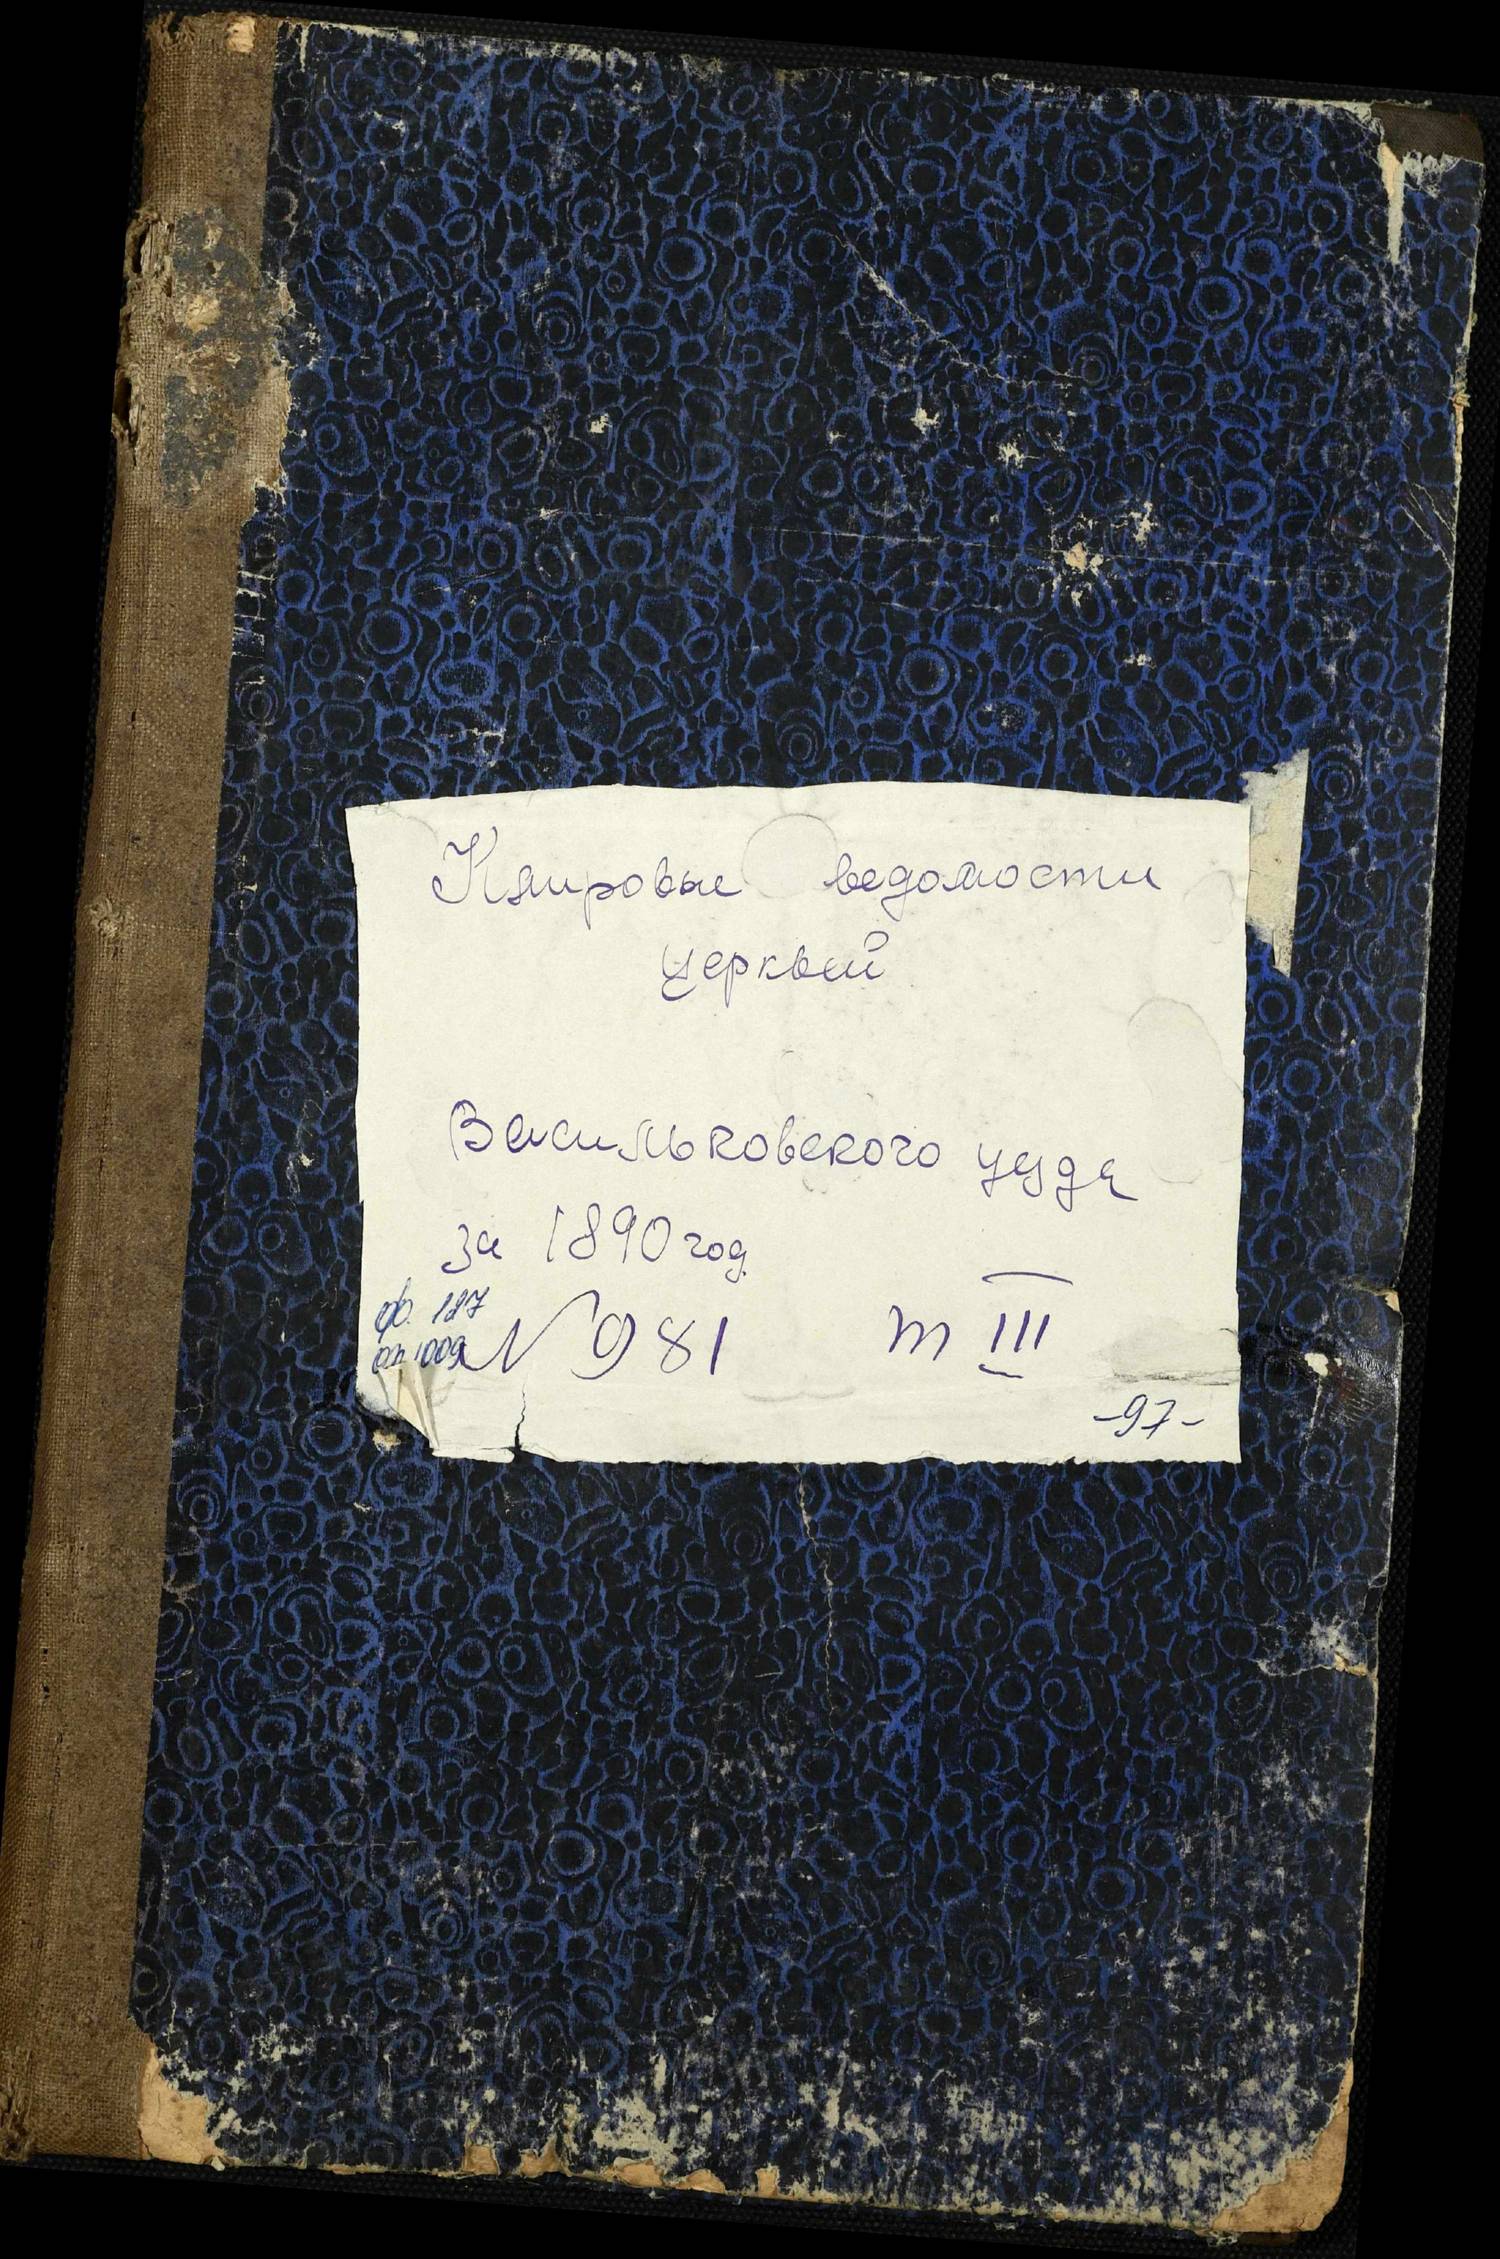 Клировые ведомости
церквей
Васильковского уезда
за 1890 год
ф. 127
оп. 1009
№ 981 т III
-97-